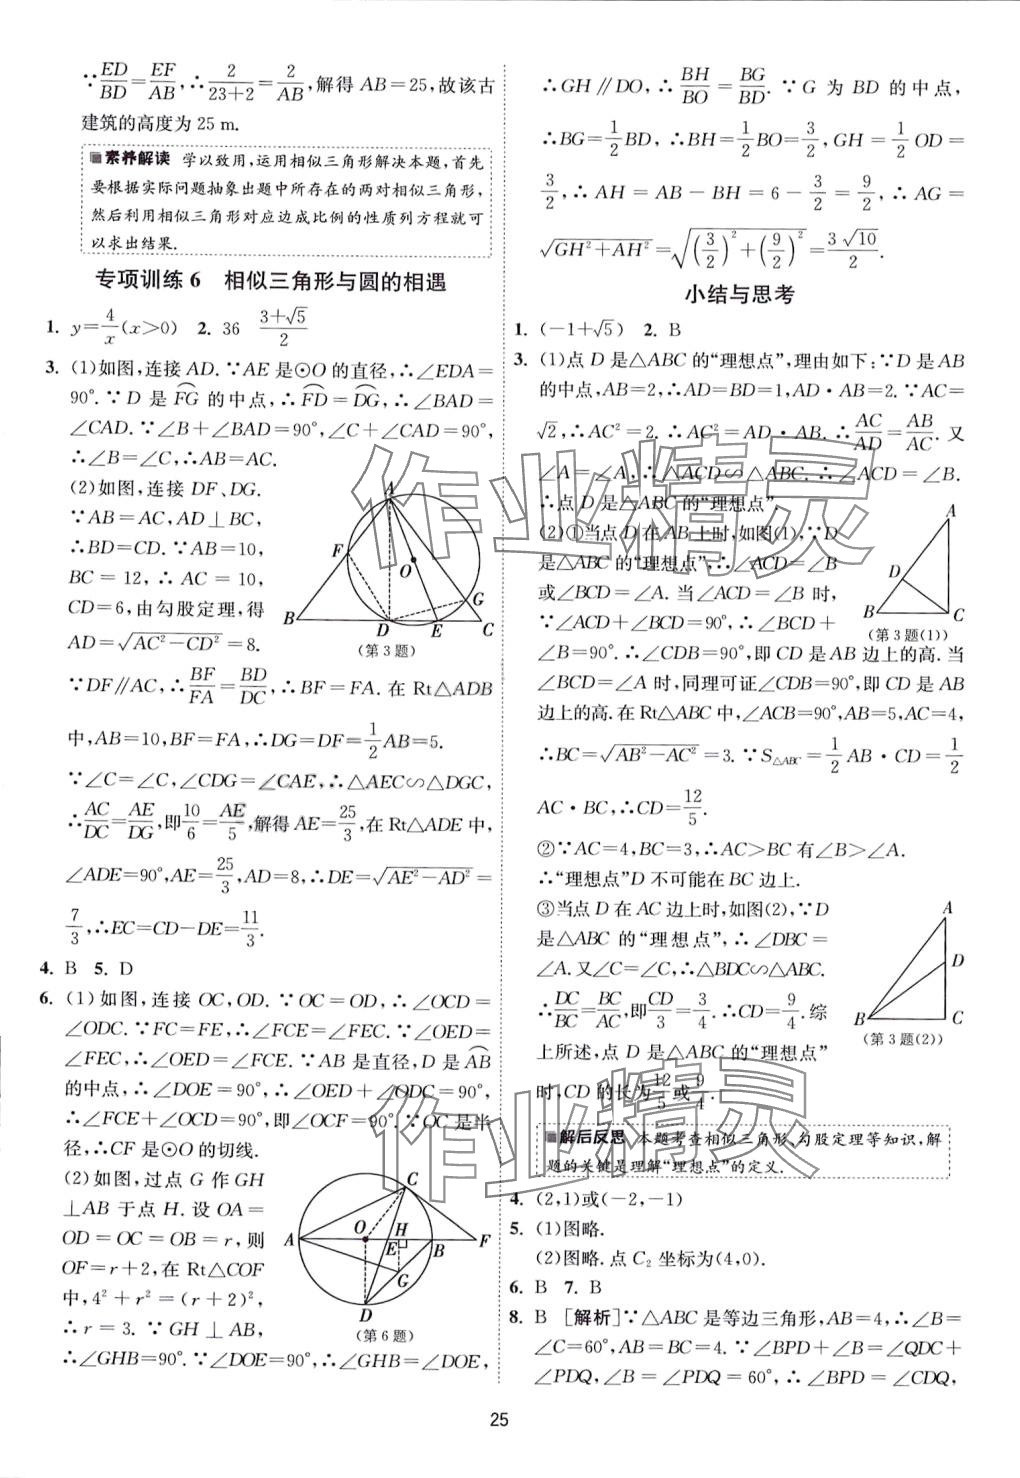 ∵ED/BD=EF/AB,∴2/(23+2)=2/AB,解得 AB=25,故该古
建筑的高度为 25 m.
素养解读 学以致用,运用相似三角形解决本题,首先
要根据实际问题抽象出题中所存在的两对相似三角形,
然后利用相似三角形对应边成比例的性质列方程就可
以求出结果.
专项训练 6 相似三角形与圆的相遇
1. y=4/x(x>0) 2. 36 (3+√5)/2
3. (1)如图,连接 AD.∵AE 是⊙O 的直径,∴∠EDA=
90°.∵D 是 FG⌒ 的中点,∴FD⌒=DG⌒,∴∠BAD=
∠CAD.∵∠B+∠BAD=90°,∠C+∠CAD=90°,
∴∠B=∠C,∴AB=AC.
(2)如图,连接 DF、DG.
∵AB=AC,AD⊥BC,
∴BD=CD.∵AB=10,
BC=12,∴AC=10,
CD=6,由勾股定理,得
AD=√(AC²-CD²)=8.
A
F
O
G
B
D
E
C
(第 3 题)
∵DF∥AC,∴BF/FA=BD/DC,∴BF=FA.在 Rt△ADB
中,AB=10,BF=FA,∴DG=DF=1/2AB=5.
∵∠C=∠C,∠CDG=∠CAE,∴△AEC∽△DGC,
∴AC/DC=AE/DG,即10/6=AE/5,解得 AE=25/3,在 Rt△ADE 中,
∠ADE=90°,AE=25/3,AD=8,∴DE=√(AE²-AD²)=
7/3,∴EC=CD-DE=11/3.
4. B 5. D
6. (1)如图,连接 OC,OD.∵OC=OD,∴∠OCD=
∠ODC.∵FC=FE,∴∠FCE=∠FEC.∵∠OED=
∠FEC,∴∠OED=∠FCE.∵AB 是直径,D 是AB⌒
的中点,∴∠DOE=90°,∴∠OED+∠ODC=90°,
∴∠FCE+∠OCD=90°,即∠OCF=90°.∵OC 是半
径,∴CF 是⊙O 的切线.
(2)如图,过点 G 作 GH
⊥AB 于点 H.设 OA=
OD=OC=OB=r,则
OF=r+2,在 Rt△COF
中,4²+r²=(r+2)²,
∴r=3.∵GH⊥AB,
C
A
O
H
E
B
F
G
D
(第 6 题)
∴∠GHB=90°.∵∠DOE=90°,∴∠GHB=∠DOE,
∴GH∥DO,∴BH/BO=BG/BD.∵G 为 BD 的中点,
∴BG=1/2BD,∴BH=1/2BO=3/2,GH=1/2OD=
3/2,∴AH=AB-BH=6-3/2=9/2,∴AG=
√(GH²+AH²)=√((3/2)²+(9/2)²)=3√10/2.
小结与思考
1. (-1+√5) 2. B
3. (1)点 D 是△ABC 的“理想点”,理由如下:∵D 是 AB
的中点,AB=2,∴AD=BD=1,AD·AB=2.∵AC=
√2,∴AC²=2.∴AC²=AD·AB.∴AC/AD=AB/AC.又
∠A=∠A,∴△ACD∽△ABC.∴∠ACD=∠B.
∴点 D 是△ABC 的“理想点”.
(2)①当点 D 在 AB 上时,如图(1),∵D
是△ABC 的“理想点”,∴∠ACD=∠B
或∠BCD=∠A.当∠ACD=∠B 时,
∵∠ACD+∠BCD=90°,∴∠BCD+
A
D
B
C
(第 3 题(1))
∠B=90°.∴∠CDB=90°,即 CD 是 AB 边上的高.当
∠BCD=∠A 时,同理可证∠CDB=90°,即 CD 是 AB
边上的高.在 Rt△ABC 中,∠ACB=90°,AB=5,AC=4,
∴BC=√(AB²-AC²)=3.∵S△ABC=1/2AB·CD=1/2
AC·BC,∴CD=12/5.
②∵AC=4,BC=3,∴AC>BC 有∠B>∠A.
∴“理想点”D 不可能在 BC 边上.
③当点 D 在 AC 边上时,如图(2),∵D
是△ABC 的“理想点”,∴∠DBC=
∠A.又∠C=∠C,∴△BDC∽△ABC.
∴DC/BC=BC/AC,即CD/3=3/4.∴CD=9/4.综
上所述,点 D 是△ABC 的“理想点”
时,CD 的长为12/5或9/4.
A
D
B
C
(第 3 题(2))
解后反思 本题考查相似三角形、勾股定理等知识,解
题的关键是理解“理想点”的定义.
4. (2,1)或(-2,-1)
5. (1)图略.
(2)图略.点 C₂ 坐标为(4,0).
6. B 7. B
8. B [解析]∵△ABC 是等边三角形,AB=4,∴∠B=
∠C=60°,AB=BC=4.∵∠BPD+∠B=∠QDC+
∠PDQ,∠B=∠PDQ=60°,∴∠BPD=∠CDQ,
25
作业精灵
作业精灵